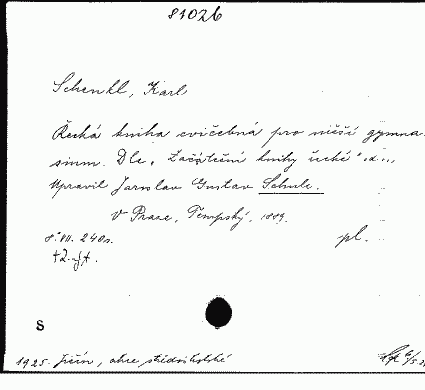 81026
Schenkl, Karl
Řecká kniha cvičebná pro nižší gymna-
sium. Dle „Začáteční knihy řecké" d...,
Upravil Jaroslav Gustav Schulz.
V Praze, Tempský, 1889.
8° VII. 240 s.
pl.
S
1925. Jičín, obec středoškolské